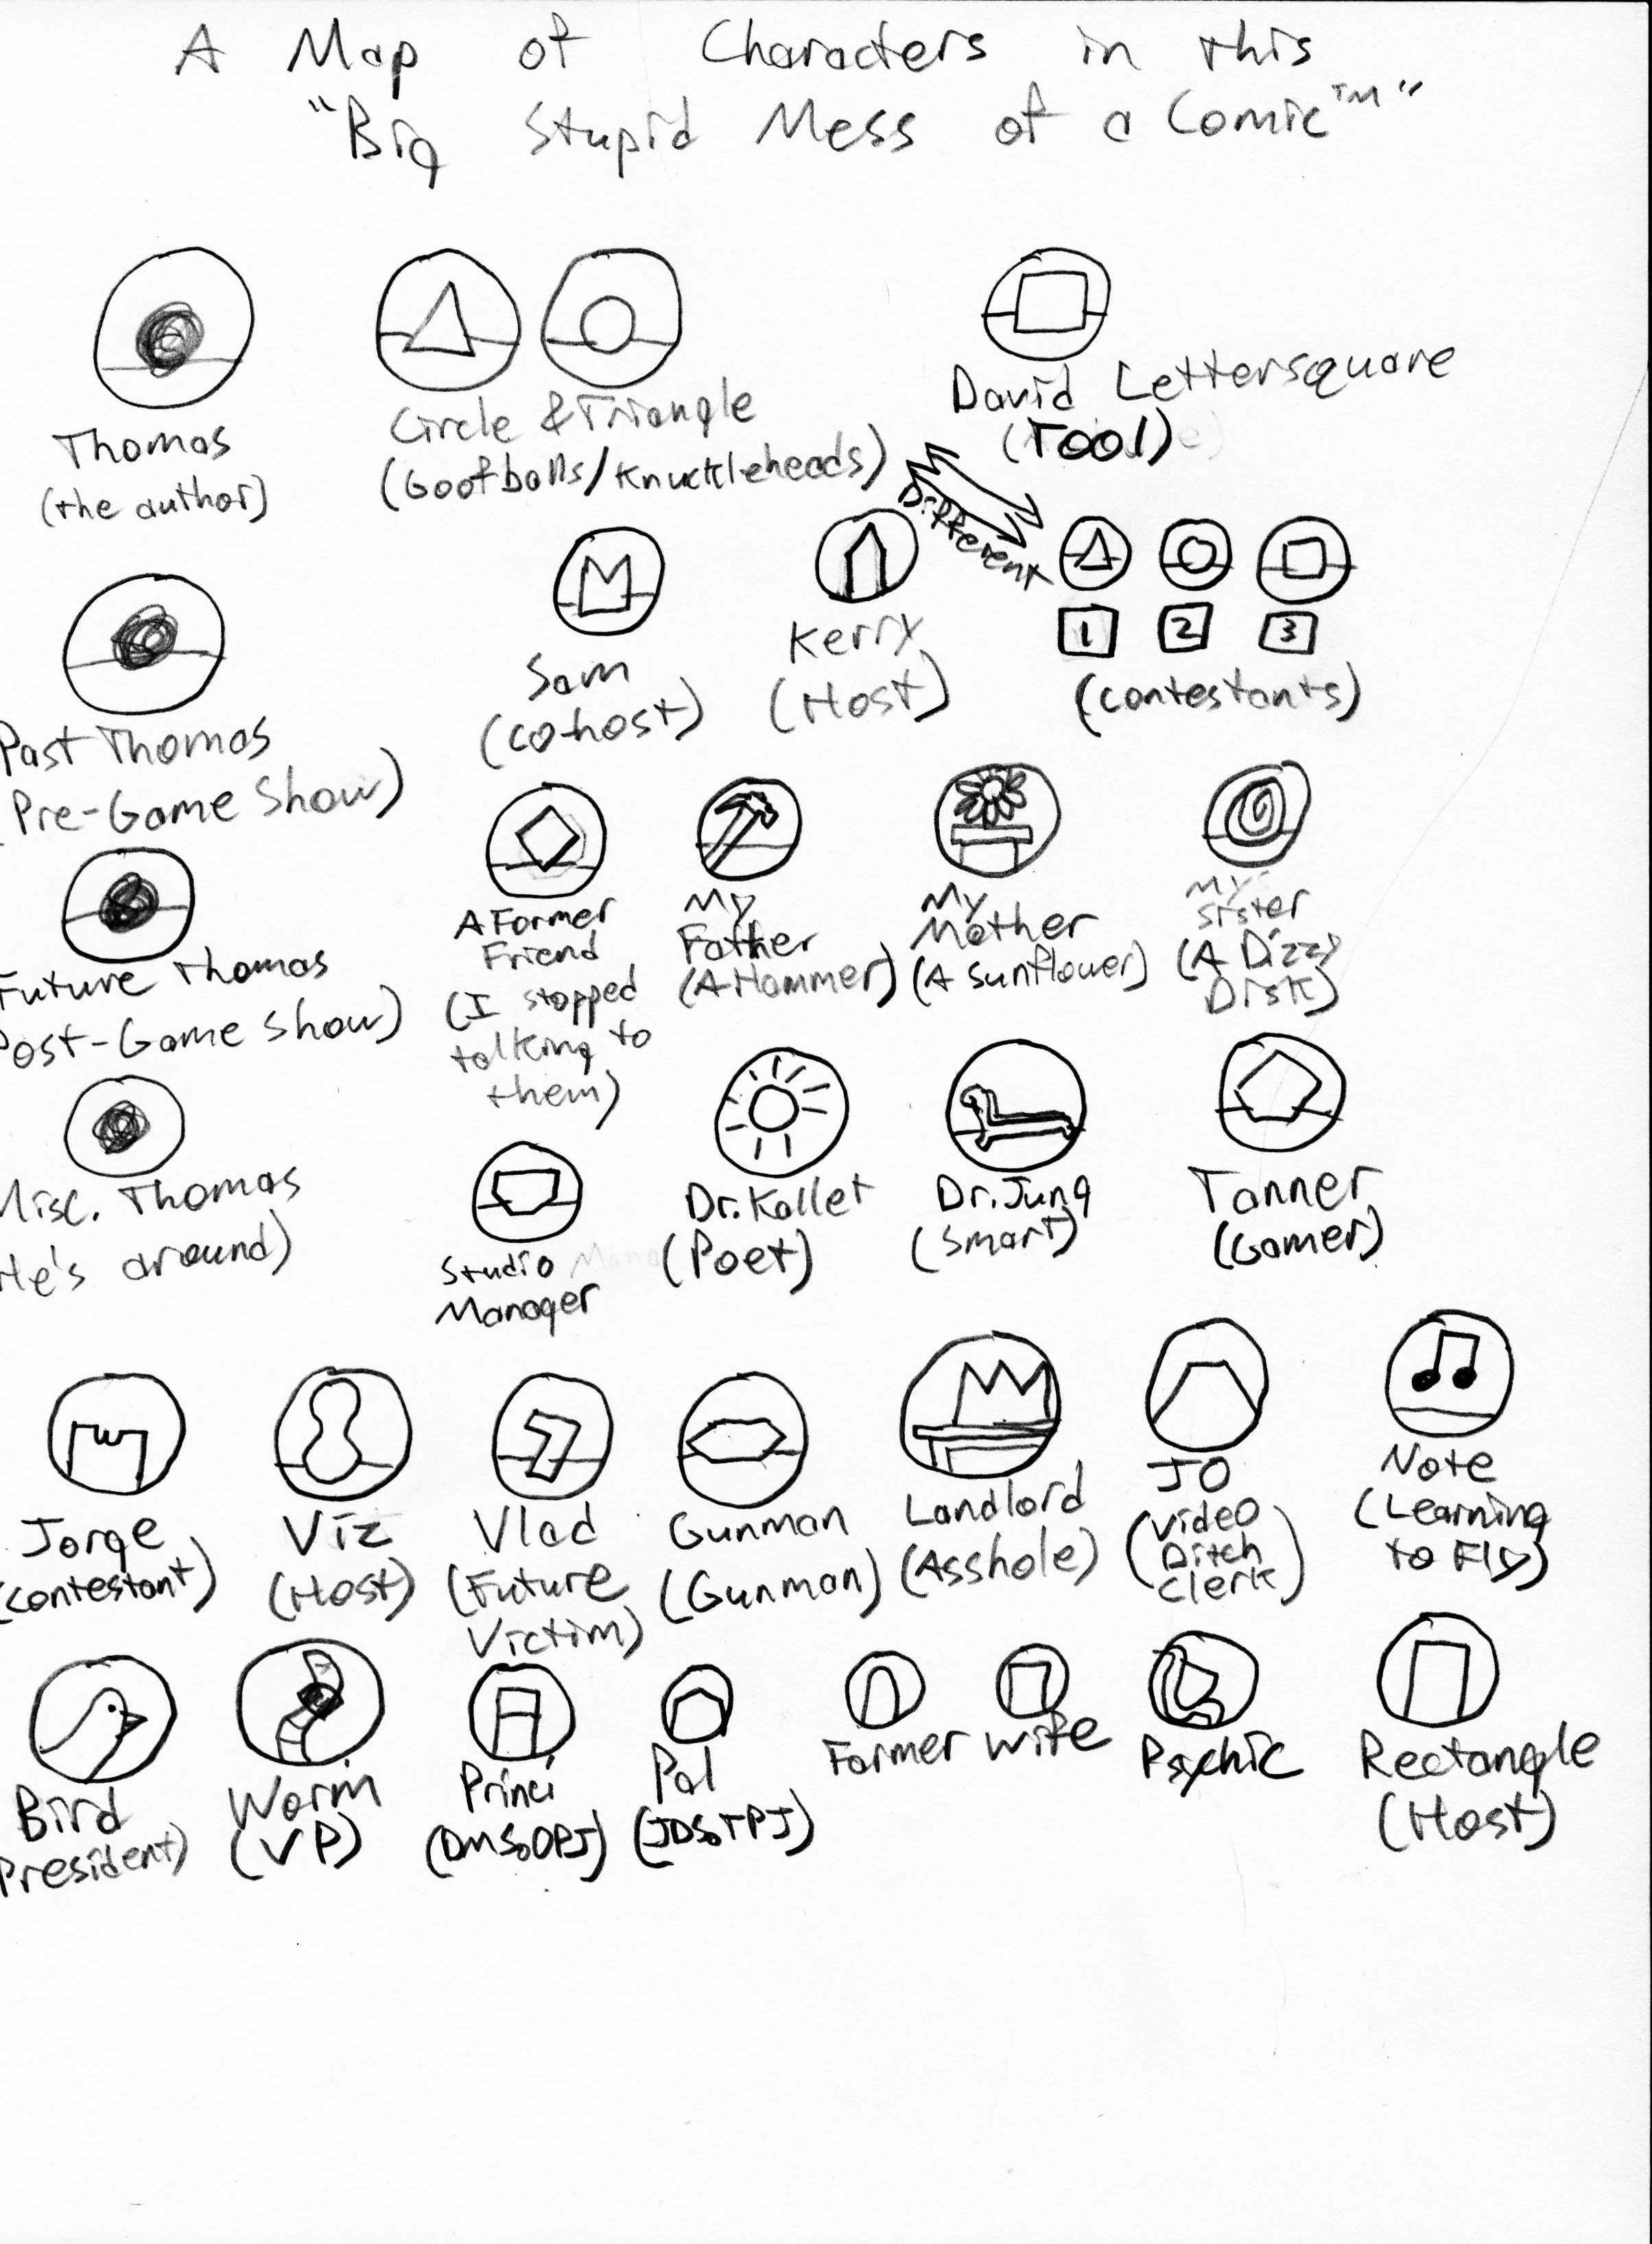 A Map of Characters in this
"Big Stupid Mess of a Comic™"
Thomas
(the author)
Circle & Triangle
(Goofballs/Knuckleheads)
David Lettersquare
(Tool)
Different
Past Thomas
Pre-Game Show)
Sam
(co-host)
Kerry
(Host)
1 2 3
(contestants)
Future Thomas
Post-Game Show)
A Former
Friend
(I stopped
talking to
them)
My
Father
(A Hammer)
My
Mother
(A Sunflower)
My
Sister
(A Dizzy
Disk)
Misc. Thomas
He's around)
Studio
Manager
Dr. Kallet
(Poet)
Dr. Jung
(Smart)
Tanner
(Gamer)
Jorge
(contestant)
Viz
(Host)
Vlad
(Future
Victim)
Gunman
(Gunman)
Landlord
(Asshole)
JO
(Video
Ditch
Clerk)
Note
(Learning
to Fly)
Bird
President)
Worm
(VP)
Princi
(DMSoOPJ)
Pal
(JDSoTPJ)
Farmer Wife
Psychic
Rectangle
(Host)